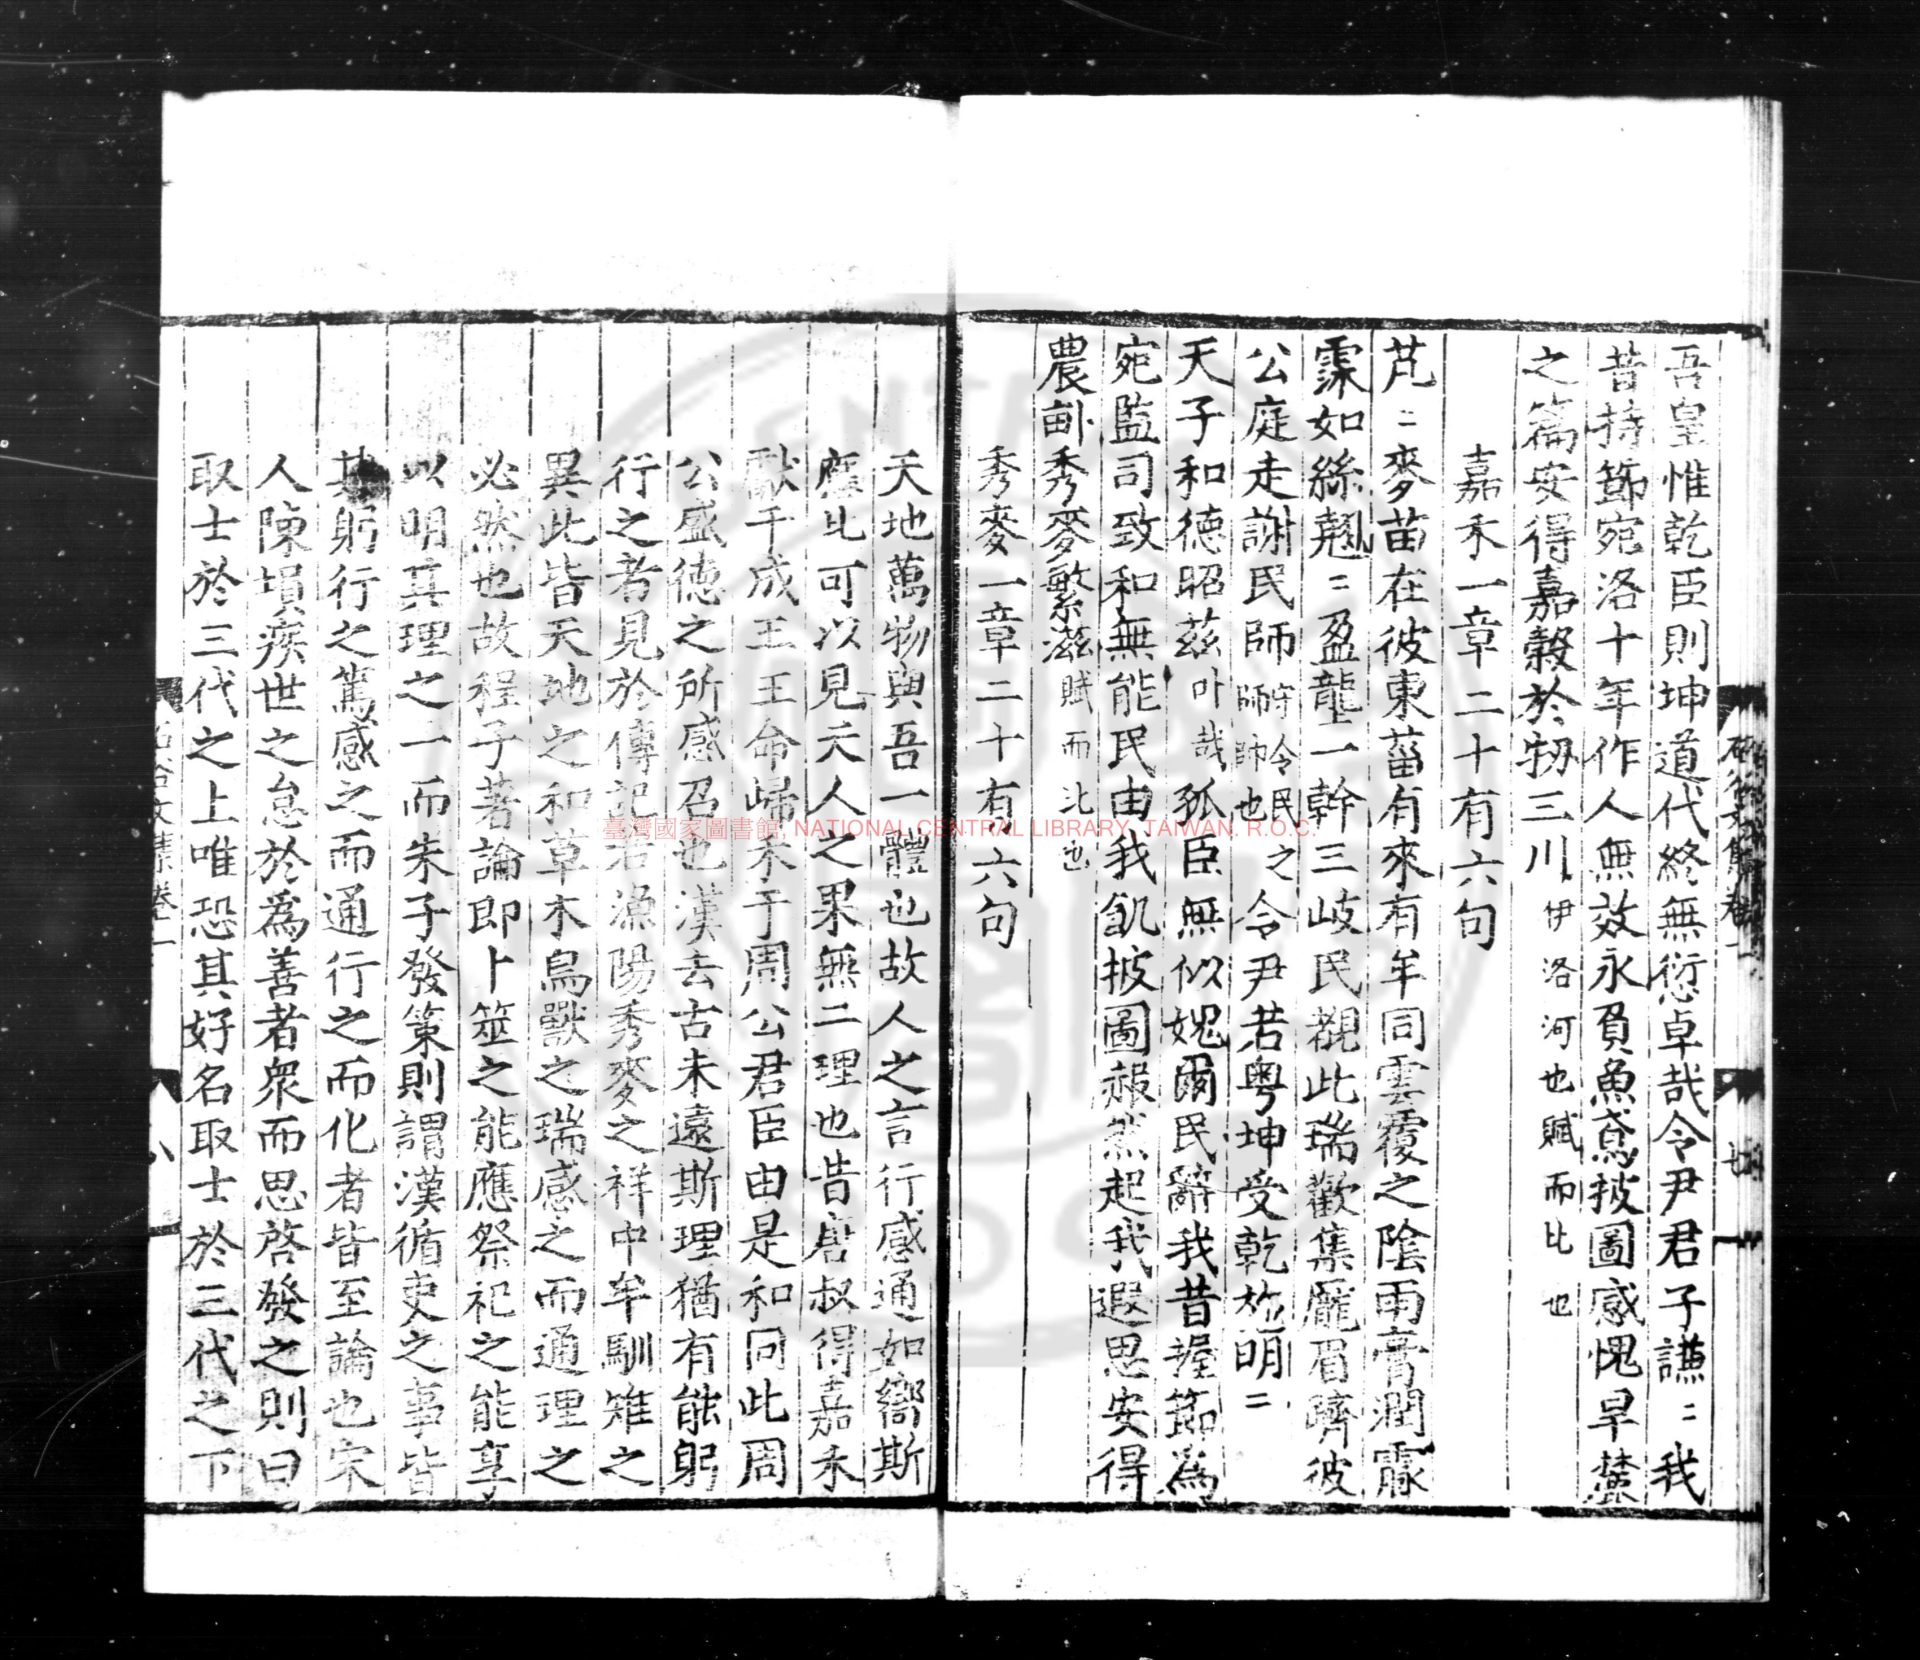 吾皇惟乾臣則坤道代終無衍愆卓哉令尹君子謙〻我
昔持節宛洛十年作人無效永負魚鳶披圖感愧旱麓
之篇安得嘉穀於牣三川伊洛河也賦而比也
嘉禾一章二十有六句
芃〻麥苗在彼東菑有來有牟同雲覆之陰雨膏潤霢
霂如絲翹〻盈壟一幹三岐民觀此瑞歡集厖眉躋彼
公庭走謝民師守令民之師帥也令尹若粵坤受乾施明〻
天子和德昭茲叶哉孤臣無似媿爾民辭我昔握節為
宛監司致和無能民由我飢披圖赧然起我遐思安得
農畝秀麥繁滋賦而比也
秀麥一章二十有六句
天地萬物與吾一體也故人之言行感通如嚮斯
應此可以見天人之果無二理也昔唐叔得嘉禾
獻于成王王命歸禾于周公君臣由是和同此周
公盛德之所感召也漢去古未遠斯理猶有能躬
行之者見於傳記若漁陽秀麥之祥中牟馴雉之
異此皆天地之和草木鳥獸之瑞感之而通理之
必然也故程子著論即卜筮之能應祭祀之能享
以明其理之一而朱子發策則謂漢循吏之事皆
其躬行之篤感之而通行之而化者皆至論也宋
人陳塤疾世之怠於為善者衆而思啓發之則曰
取士於三代之上唯恐其好名取士於三代之下
石谷文集卷一
八
臺灣國家圖書館, NATIONAL CENTRAL LIBRARY, TAIWAN, R.O.C.